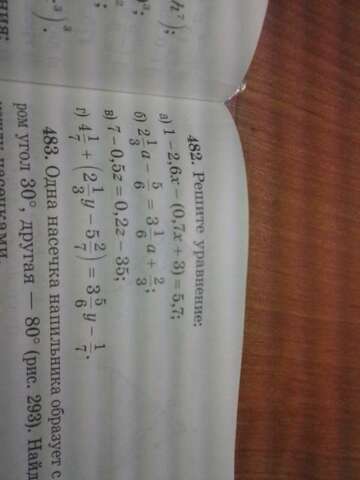 h⁷);
³)³.
482. Решите уравнение:
а) 1 − 2,6x − (0,7x + 3) = 5,7;
б) 2 1/3 a − 5/6 = 3 1/6 a + 2/3;
в) 7 − 0,5z = 0,2z − 35;
г) 4 1/7 + (2 1/3 y − 5 2/7) = 3 5/6 y − 1/7.
483. Одна насечка напильника образует с
ром угол 30°, другая — 80° (рис. 293). Найд